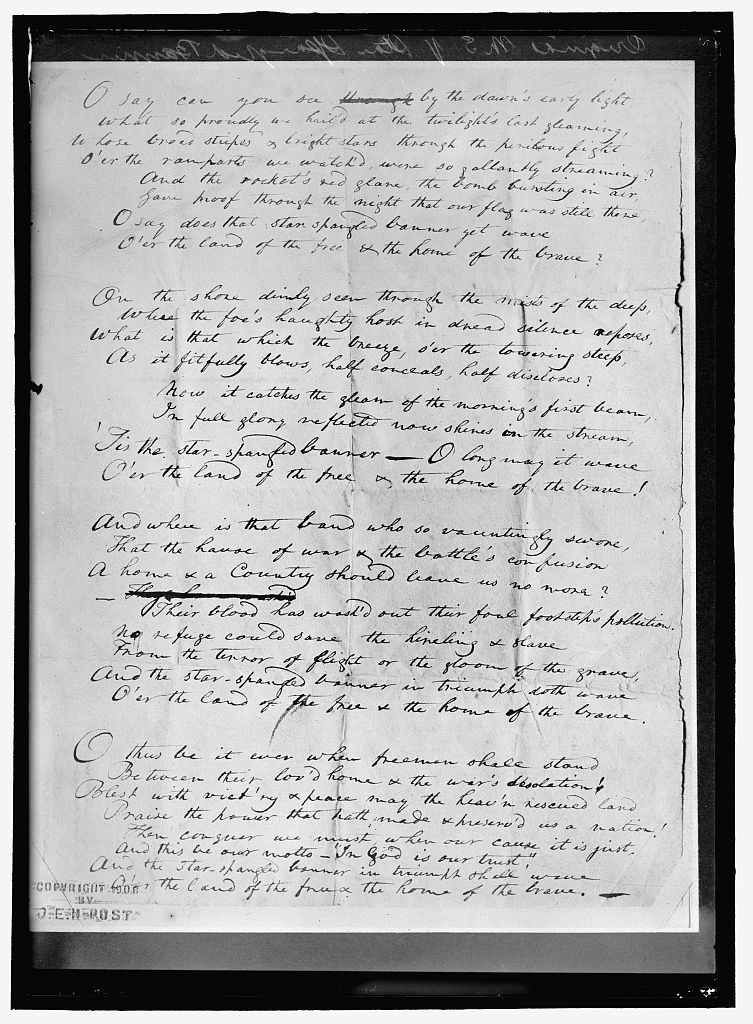 Original M.S. of Star Spangled Banner
O say can you see ~~through~~ by the dawn's early light
What so proudly we hail'd at the twilight's last gleaming,
Whose broad stripes & bright stars through the perilous fight
O'er the ramparts we watch'd, were so gallantly streaming?
And the rocket's red glare, the bomb bursting in air,
Gave proof through the night that our flag was still there,
O say does that star spangled banner yet wave
O'er the land of the free & the home of the brave?
On the shore dimly seen through the mists of the deep,
Where the foe's haughty host in dread silence reposes,
What is that which the breeze, o'er the towering steep,
As it fitfully blows, half conceals, half discloses?
Now it catches the gleam of the morning's first beam,
In full glory reflected now shines in the stream,
'Tis the star-spangled banner — O long may it wave
O'er the land of the free & the home of the brave!
And where is that band who so vauntingly swore,
That the havoc of war & the battle's confusion
A home & a Country should leave us no more?
—
Their blood has wash'd out their foul footstep's pollution.
No refuge could save the hireling & slave
From the terror of flight or the gloom of the grave,
And the star-spangled banner in triumph doth wave
O'er the land of the free & the home of the brave.
O thus be it ever when freemen shall stand
Between their lov'd home & the war's desolation!
Blest with vict'ry & peace may the heav'n rescued land
Praise the power that hath made & preserv'd us a nation!
Then conquer we must, when our cause it is just,
And this be our motto — "In God is our trust,"
And the star-spangled banner in triumph shall wave
O'er the land of the free & the home of the brave. —
COPYRIGHT 1908
BY
J.E.H.POST